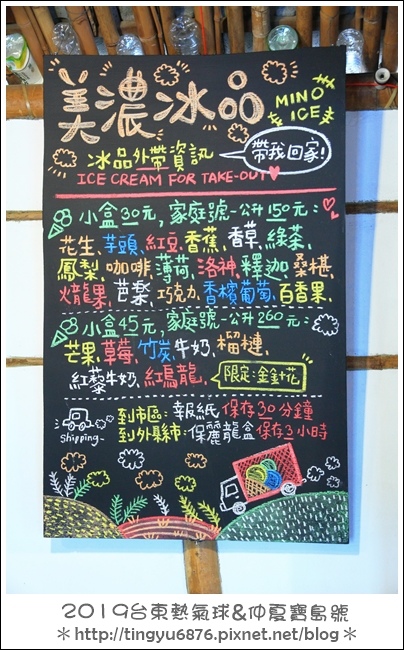 美濃冰品
MINO ICE
冰品外帶資訊
帶我回家!
ICE CREAM FOR TAKE-OUT
小盒30元,家庭號一公升150元:
花生、芋頭、紅豆、香蕉、香草、綠茶、
鳳梨、咖啡、薄荷、洛神、釋迦、桑椹、
火龍果、芭樂、巧克力、香檳葡萄、百香果、
小盒45元,家庭號一公升260元:
芒果、草莓、竹炭牛奶、榴槤、
紅藜牛奶、紅烏龍、
限定:金針花
Shipping~
到市區:報紙保存30分鐘
到外縣市:保麗龍盒保存3小時
2019台東熱氣球&仲夏寶島號
*http://tingyu6876.pixnet.net/blog*